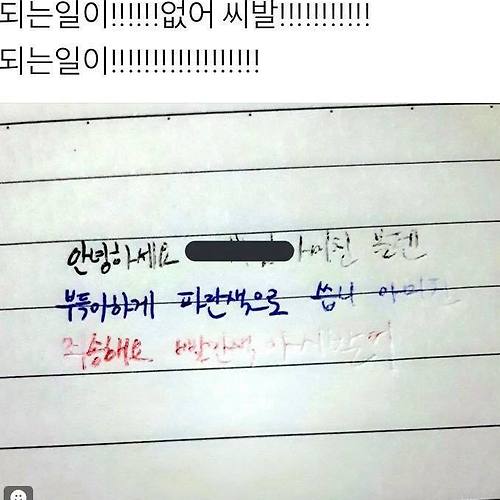 되는일이!!!!!!없어 씨발!!!!!!!!!!!
되는일이!!!!!!!!!!!!!!!!!!
안녕하세요 아미친 볼텐
부득이하게 파란색으로 씁니 아미친
죄송해요 빨간색 아시박꺼